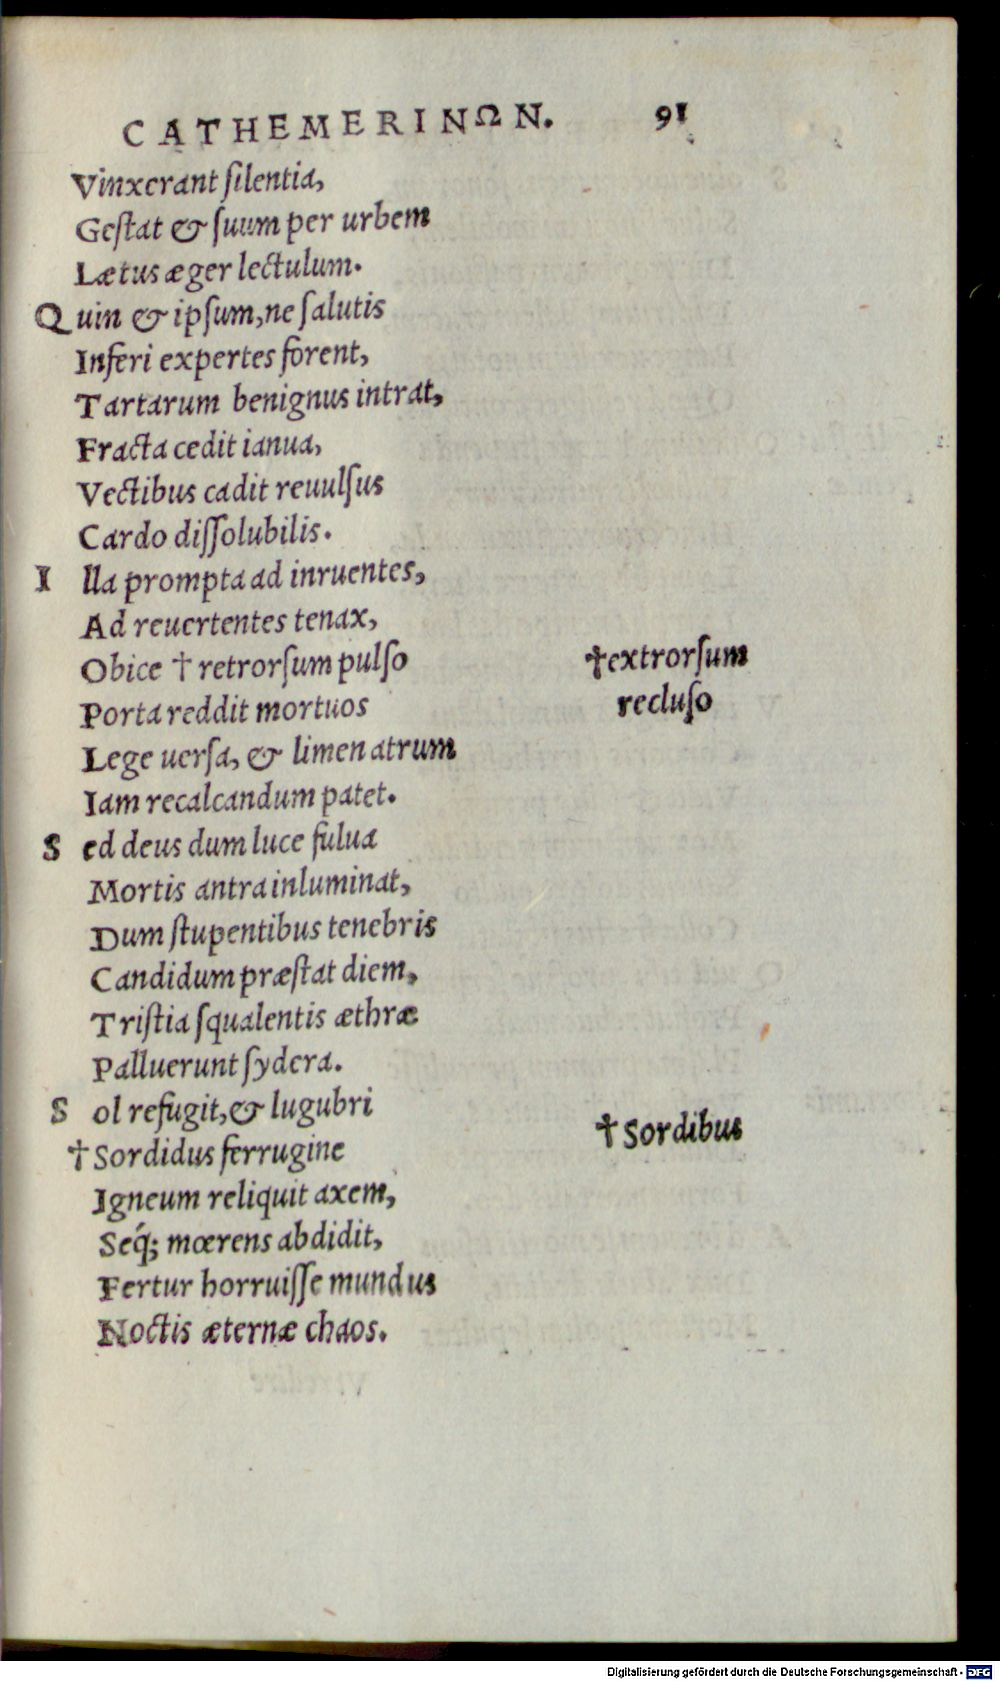 CATHEMERINΩN. 91
Vinxerant ſilentia,
Geſtat & ſuum per urbem
Lætus æger lectulum.
Quin & ipſum, ne ſalutis
Inferi expertes forent,
Tartarum benignus intrat,
Fracta cedit ianua,
Vectibus cadit reuulſus
Cardo diſſolubilis.
I lla prompta ad inruentes,
Ad reuertentes tenax,
Obice † retrorſum pulſo
†extrorſum
Porta reddit mortuos
recluſo
Lege uerſa, & limen atrum
Iam recalcandum patet.
S ed deus dum luce fulua
Mortis antra inluminat,
Dum ſtupentibus tenebris
Candidum præſtat diem,
Triſtia ſqualentis æthræ
Palluerunt ſydera.
S ol refugit, & lugubri
†Sordidus ferrugine
†Sordibus
Igneum reliquit axem,
Seq́; mœrens abdidit,
Fertur horruiſſe mundus
Noctis æternæ chaos.
Digitalisierung gefördert durch die Deutsche Forschungsgemeinschaft - DFG